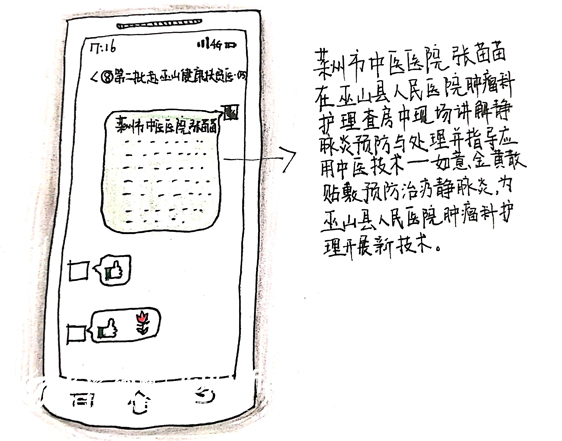 17:16
4G
第二批赴巫山健康扶贫医
莱州市中医医院张苗苗
莱州市中医医院张苗苗
在巫山县人民医院肿瘤科
护理查房中现场讲解静
脉炎预防与处理并指导应
用中医技术——如意金黄散
贴敷预防治疗静脉炎,为
巫山县人民医院肿瘤科护
理开展新技术。